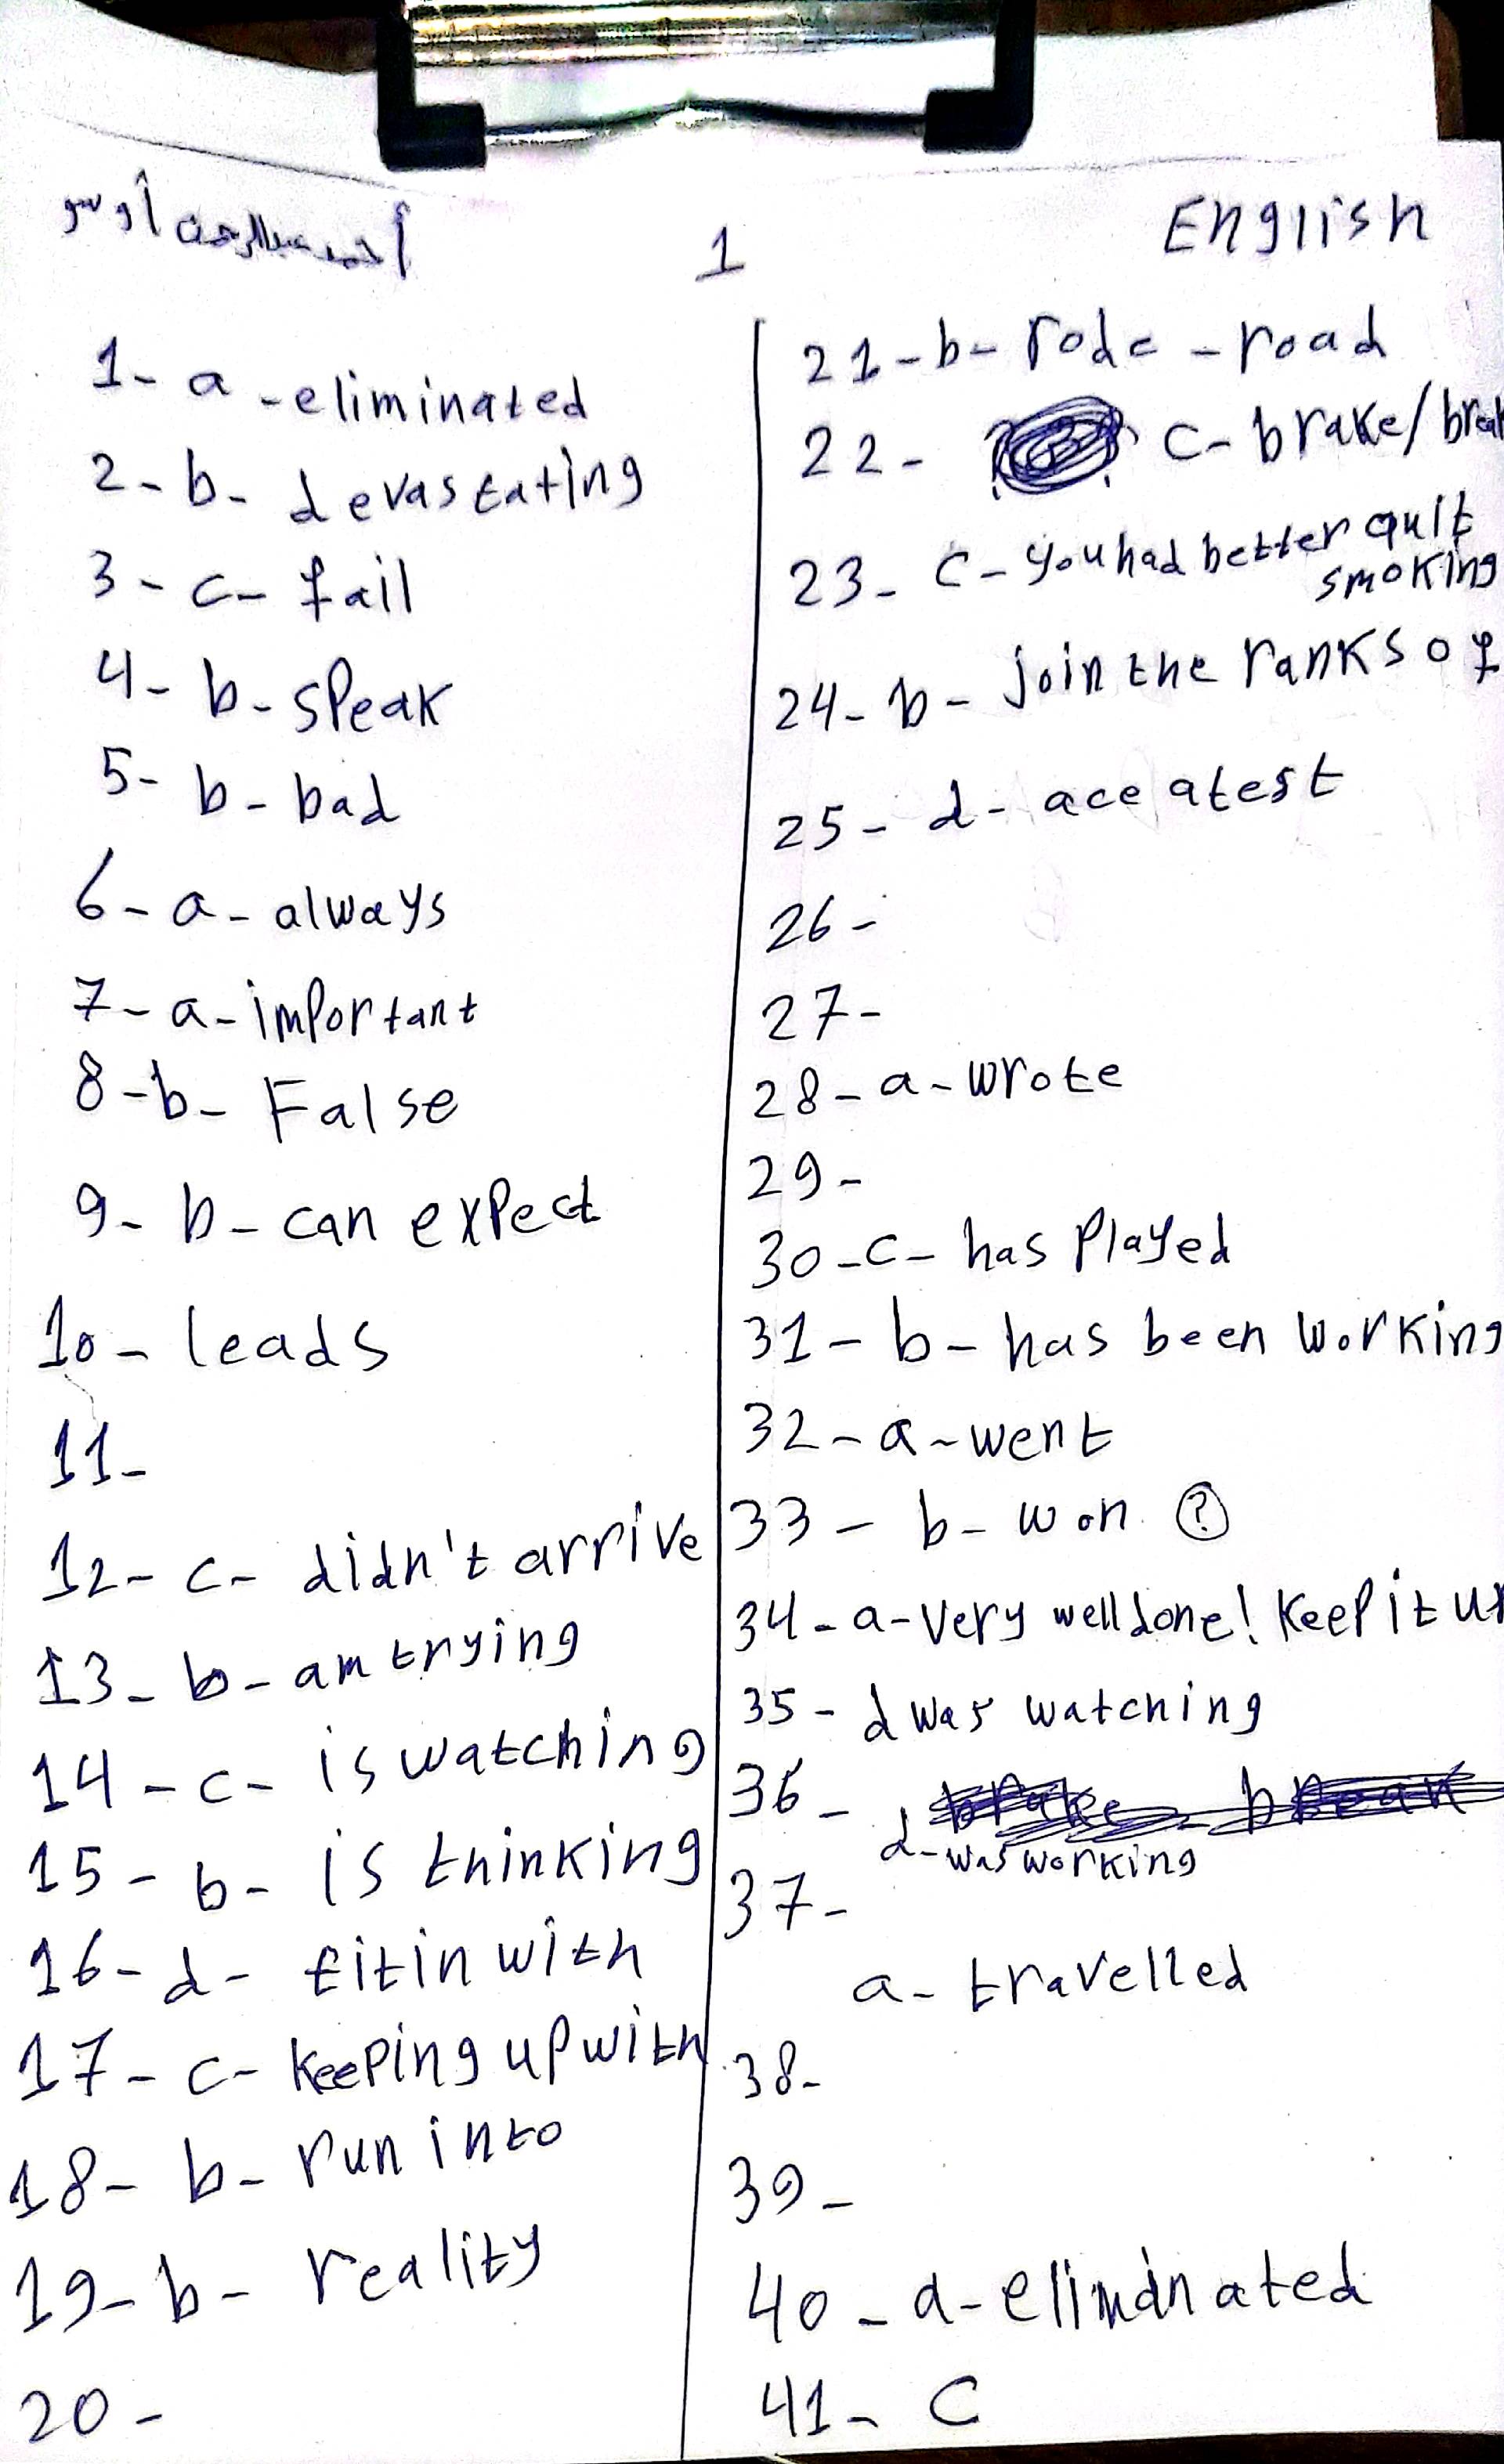 أحمد عبدالرحمن أوسو
1
English
1- a - eliminated
2- b- devastating
3- c- fail
4- b- speak
5- b- bad
6- a- always
7- a- important
8- b- False
9- b- can expect
10- leads
11-
12- c- didn't arrive
13- b- am trying
14- c- is watching
15- b- is thinking
16- d- fit in with
17- c- keeping up with
18- b- run into
19- b- reality
20-
21- b- rode - road
22- c- brake/break
23- c- you had better quit
smoking
24- b- join the ranks of
25- d- ace a test
26-
27-
28- a- wrote
29-
30- c- has played
31- b- has been working
32- a- went
33- b- won ?
34- a- very well done! keep it up
35- d was watching
36- d- was working
37-
a- travelled
38-
39-
40- a- eliminated
41- c